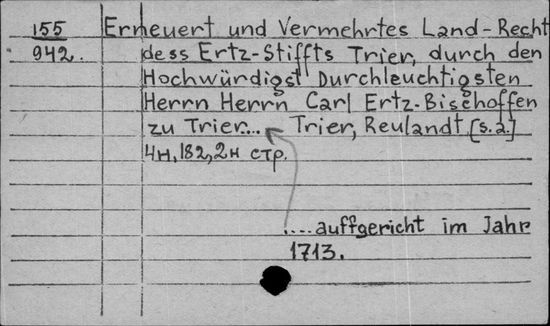 155 Erneuert und Vermehrtes Land-Recht
942. dess Ertz-Stiffts Trier, durch den
Hochwürdigst Durchleuchtigsten
Herrn Herrn Carl Ertz-Bischoffen
zu Trier... Trier, Reulandt [s.a.]
4н, 182, 2н стр.
....auffgericht im Jahr
1713.